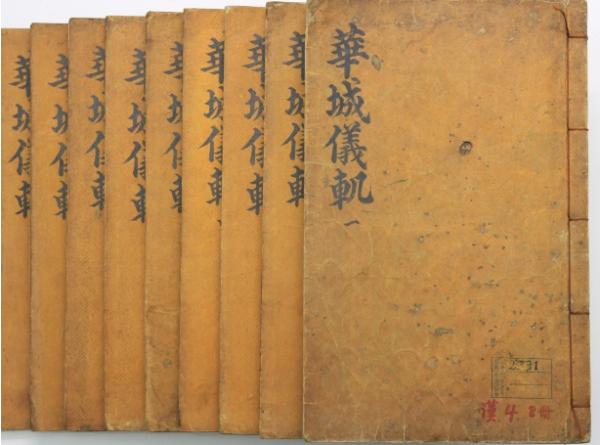 華城儀軌 一
華城儀軌
華城儀軌
華城儀軌
華城儀軌
華城儀軌
華城儀軌
華城儀軌
華城儀軌
4. 8冊